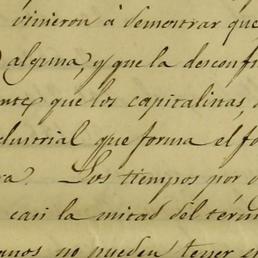 vinieron á demostrar que
alguna, y que la desconfi
nte que los capitalistas,
dustrial que forma el fo
ra. Los tiempos por
casi la mitad del térm
no pueden tener